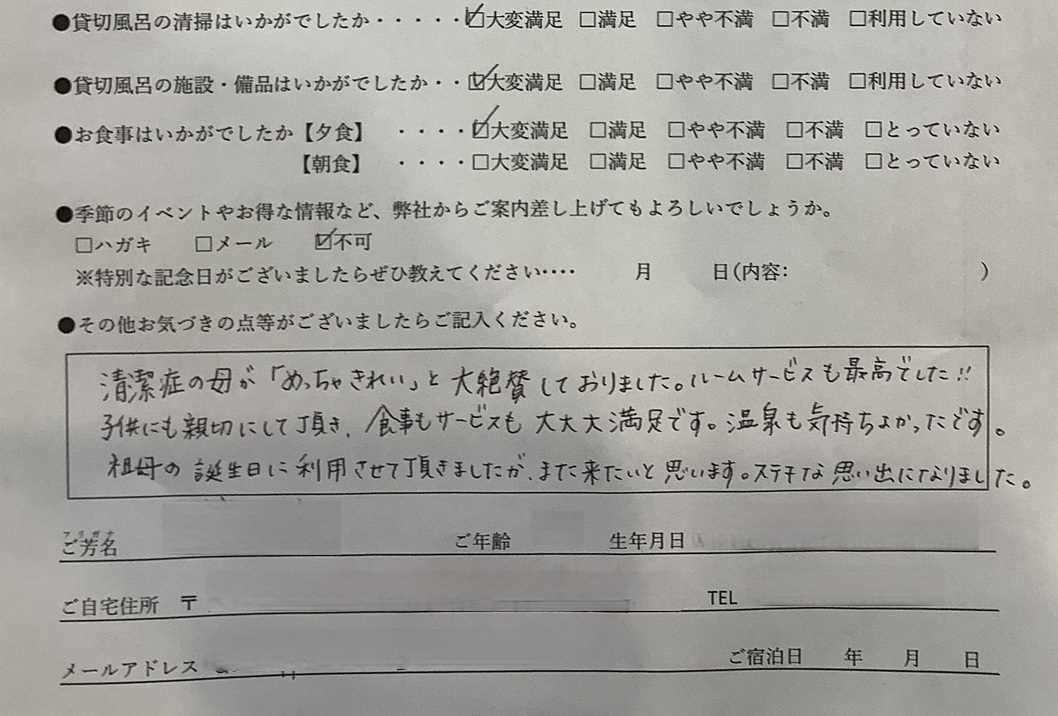 ●貸切風呂の清掃はいかがでしたか・・・・・☑大変満足 □満足 □やや不満 □不満 □利用していない
●貸切風呂の施設・備品はいかがでしたか・・☑大変満足 □満足 □やや不満 □不満 □利用していない
●お食事はいかがでしたか【夕食】 ・・・・☑大変満足 □満足 □やや不満 □不満 □とっていない
【朝食】 ・・・・□大変満足 □満足 □やや不満 □不満 □とっていない
●季節のイベントやお得な情報など、弊社からご案内差し上げてもよろしいでしょうか。
□ハガキ □メール ☑不可
※特別な記念日がございましたらぜひ教えてください‥‥ 月 日(内容: )
●その他お気づきの点等がございましたらご記入ください。
清潔症の母が「めっちゃきれい」と大絶賛しておりました。ルームサービスも最高でした!!
子供にも親切にして頂き、食事もサービスも大大大満足です。温泉も気持ちよかったです。
祖母の誕生日に利用させて頂きましたが、また来たいと思います。ステキな思い出になりました。
フリガナ
ご芳名 ご年齢 生年月日
ご自宅住所 〒 TEL
メールアドレス ご宿泊日 年 月 日